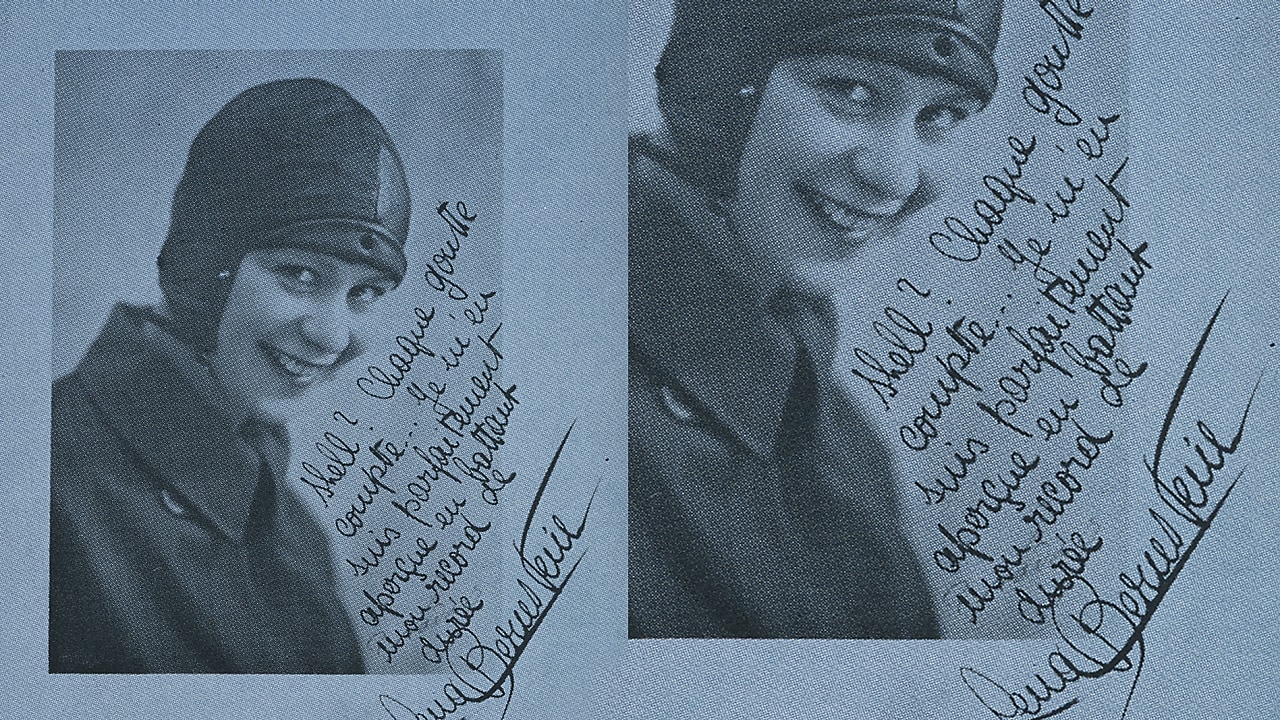 Shell? Chaque goutte
compte... Je m'en
suis parfaitement
aperçue en battant
mon record de
durée
Lena Bernstein
Shell? Chaque goutte
compte... Je m'en
suis parfaitement
aperçue en battant
mon record de
durée
Lena Bernstein